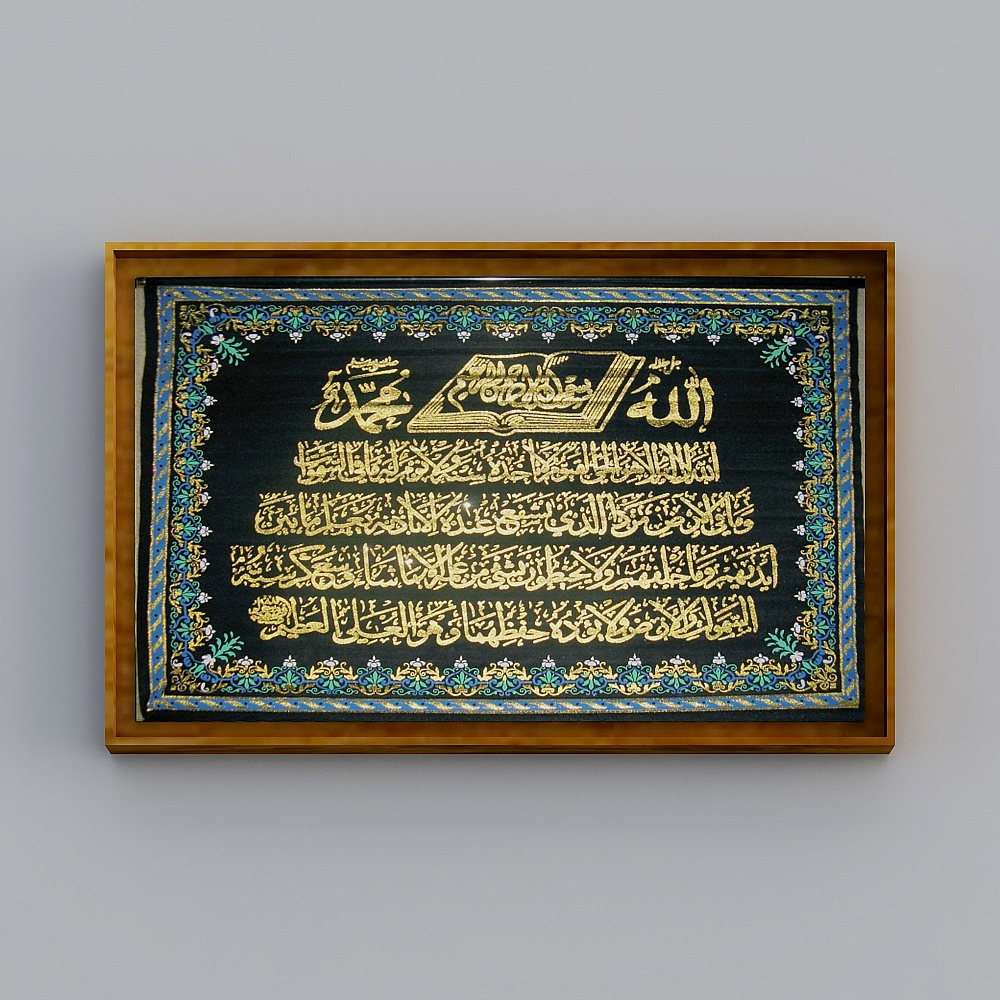 الله جل جلاله بسم الله الرحمن الرحيم محمد
الله لا إله إلا هو الحي القيوم لا تأخذه سنة ولا نوم له ما في السموات
وما في الأرض من ذا الذي يشفع عنده إلا بإذنه يعلم ما بين
أيديهم وما خلفهم ولا يحيطون بشيء من علمه إلا بما شاء وسع كرسيه
السموات والأرض ولا يؤده حفظهما وهو العلي العظيم